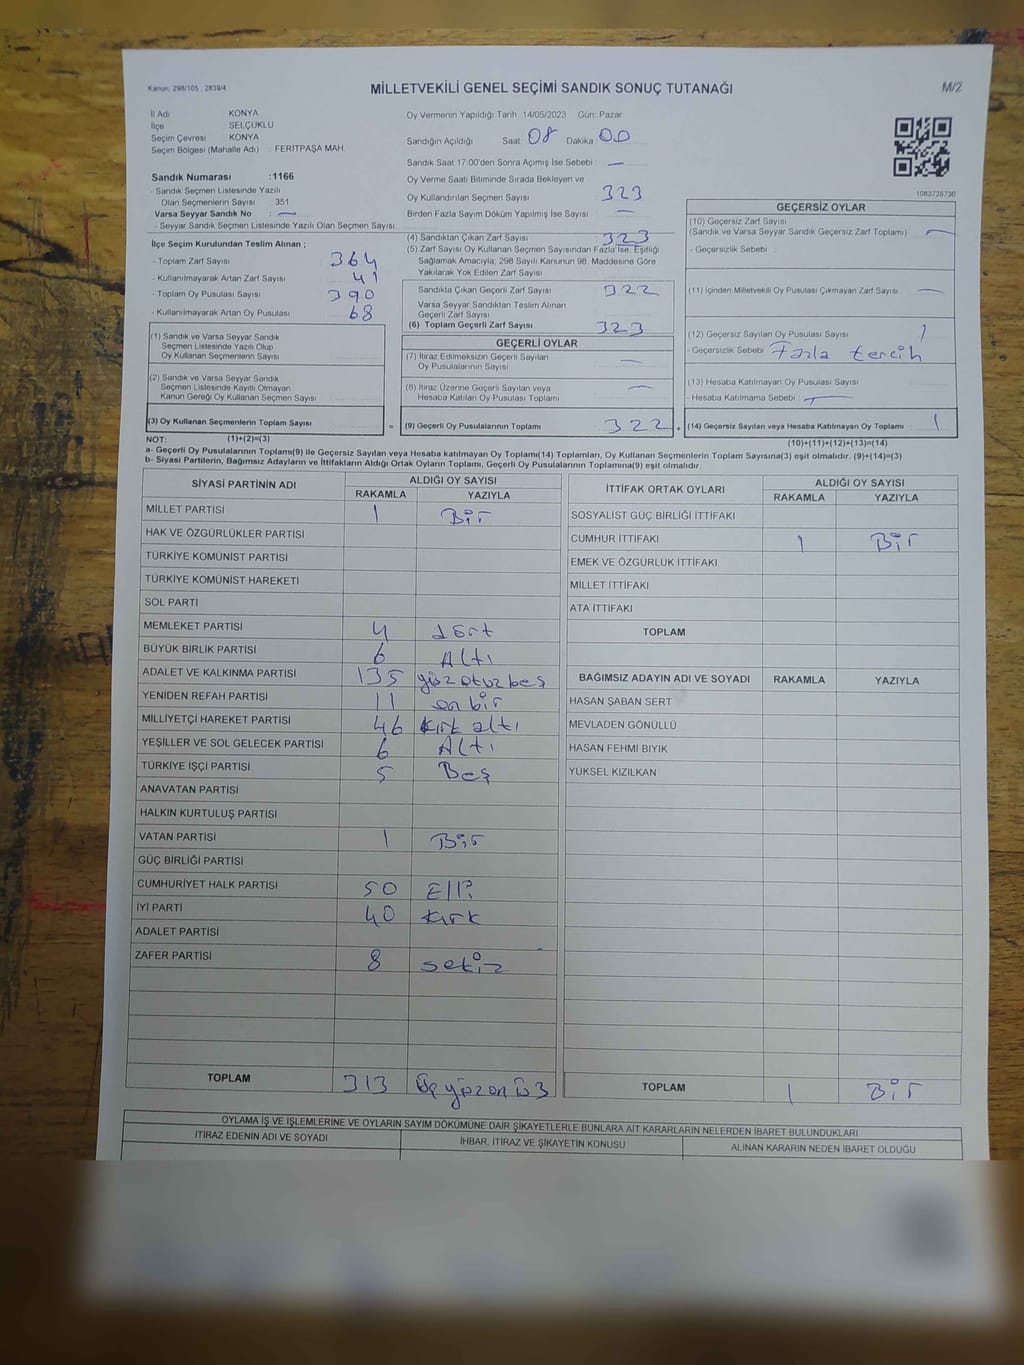 Kanun, 298/105 , 2839/4
MİLLETVEKİLİ GENEL SEÇİMİ SANDIK SONUÇ TUTANAĞI
M/2
İl Adı KONYA
İlçe SELÇUKLU
Seçim Çevresi KONYA
Seçim Bölgesi (Mahalle Adı) : FERİTPAŞA MAH.
Oy Vermenin Yapıldığı Tarih 14/05/2023 Gün: Pazar
Sandığın Açıldığı Saat: 08 Dakika 00
Sandık Saat 17.00'den Sonra Açımış İse Sebebi : —
Sandık Numarası :1166
- Sandık Seçmen Listesinde Yazılı
Olan Seçmenlerin Sayısı : 351
Varsa Seyyar Sandık No : —
- Seyyar Sandık Seçmen Listesinde Yazılı Olan Seçmen Sayısı:
Oy Verme Saati Bitiminde Sırada Bekleyen ve
Oy Kullandırılan Seçmen Sayısı 323
Birden Fazla Sayım Döküm Yapılmış İse Sayısı —
1083735730
İlçe Seçim Kurulundan Teslim Alınan ;
- Toplam Zarf Sayısı 364
- Kullanılmayarak Artan Zarf Sayısı 41
- Toplam Oy Pusulası Sayısı 390
- Kullanılmayarak Artan Oy Pusulası 68
(1) Sandık ve Varsa Seyyar Sandık
Seçmen Listesinde Yazılı Olup
Oy Kullanan Seçmenlerin Sayısı
(2) Sandık ve Varsa Seyyar Sandık
Seçmen Listesinde Kayıtlı Olmayan
Kanun Gereği Oy Kullanan Seçmen Sayısı
(3) Oy Kullanan Seçmenlerin Toplam Sayısı =
(4) Sandıktan Çıkan Zarf Sayısı 323
(5) Zarf Sayısı Oy Kullanan Seçmen Sayısından Fazla İse, Eşitliği
Sağlamak Amacıyla; 298 Sayılı Kanunun 98. Maddesine Göre
Yakılarak Yok Edilen Zarf Sayısı
Sandıkta Çıkan Geçerli Zarf Sayısı 322
Varsa Seyyar Sandıktan Teslim Alınan
Geçerli Zarf Sayısı
(6) Toplam Geçerli Zarf Sayısı 323
GEÇERLİ OYLAR
(7) İtiraz Edilmeksizin Geçerli Sayılan
Oy Pusulalarının Sayısı —
(8) İtiraz Üzerine Geçerli Sayılan veya
Hesaba Katılan Oy Pusulası Toplamı —
(9) Geçerli Oy Pusulalarının Toplamı 322 +
GEÇERSİZ OYLAR
(10) Geçersiz Zarf Sayısı
(Sandık ve Varsa Seyyar Sandık Geçersiz Zarf Toplamı) —
- Geçersizlik Sebebi :
(11) İçinden Milletvekili Oy Pusulası Çıkmayan Zarf Sayısı —
(12) Geçersiz Sayılan Oy Pusulası Sayısı 1
- Geçersizlik Sebebi Fazla tercih
(13) Hesaba Katılmayan Oy Pusulası Sayısı
- Hesaba Katılmama Sebebi : —
(14) Geçersiz Sayılan veya Hesaba Katılmayan Oy Toplamı 1
NOT: (1)+(2)=(3)
(10)+(11)+(12)+(13)=(14)
a- Geçerli Oy Pusulalarının Toplamı(9) ile Geçersiz Sayılan veya Hesaba katılmayan Oy Toplamı(14) Toplamları, Oy Kullanan Seçmenlerin Toplam Sayısına(3) eşit olmalıdır. (9)+(14)=(3)
b- Siyasi Partilerin, Bağımsız Adayların ve İttifakların Aldığı Ortak Oyların Toplamı, Geçerli Oy Pusulalarının Toplamına(9) eşit olmalıdır.
SİYASİ PARTİNİN ADI ALDIĞI OY SAYISI
RAKAMLA YAZIYLA
MİLLET PARTİSİ 1 Bir
HAK VE ÖZGÜRLÜKLER PARTİSİ
TÜRKİYE KOMÜNİST PARTİSİ
TÜRKİYE KOMÜNİST HAREKETİ
SOL PARTİ
MEMLEKET PARTİSİ 4 dört
BÜYÜK BİRLİK PARTİSİ 6 Altı
ADALET VE KALKINMA PARTİSİ 135 yüzotuzbeş
YENİDEN REFAH PARTİSİ 11 on bir
MİLLİYETÇİ HAREKET PARTİSİ 46 kırk altı
YEŞİLLER VE SOL GELECEK PARTİSİ 6 Altı
TÜRKİYE İŞÇİ PARTİSİ 5 Beş
ANAVATAN PARTİSİ
HALKIN KURTULUŞ PARTİSİ
VATAN PARTİSİ 1 Bir
GÜÇ BİRLİĞİ PARTİSİ
CUMHURİYET HALK PARTİSİ 50 Elli
İYİ PARTİ 40 Kırk
ADALET PARTİSİ
ZAFER PARTİSİ 8 sekiz
TOPLAM 313 Üçyüzonü3
İTTİFAK ORTAK OYLARI ALDIĞI OY SAYISI
RAKAMLA YAZIYLA
SOSYALİST GÜÇ BİRLİĞİ İTTİFAKI
CUMHUR İTTİFAKI 1 Bir
EMEK VE ÖZGÜRLÜK İTTİFAKI
MİLLET İTTİFAKI
ATA İTTİFAKI
TOPLAM
BAĞIMSIZ ADAYIN ADI VE SOYADI RAKAMLA YAZIYLA
HASAN ŞABAN SERT
MEVLADEN GÖNÜLLÜ
HASAN FEHMI BIYIK
YÜKSEL KIZILKAN
TOPLAM 1 Bir
OYLAMA İŞ VE İŞLEMLERİNE VE OYLARIN SAYIM DÖKÜMÜNE DAİR ŞİKAYETLERLE BUNLARA AİT KARARLARIN NELERDEN İBARET BULUNDUKLARI
İTİRAZ EDENİN ADI VE SOYADI İHBAR, İTİRAZ VE ŞİKAYETİN KONUSU ALINAN KARARIN NEDEN İBARET OLDUĞU